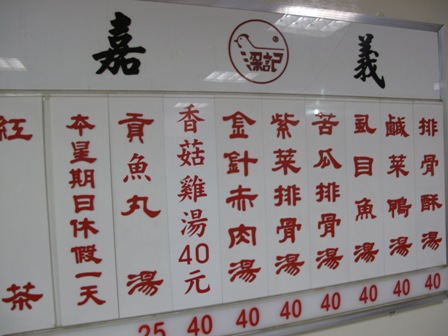 嘉義
梁記
®
排骨酥湯
鹹菜鴨湯
虱目魚湯
苦瓜排骨湯
紫菜排骨湯
金針赤肉湯
香菇雞湯40元
貢魚丸湯
本星期日休假一天
紅茶
25 40 40 40 40 40 40 40